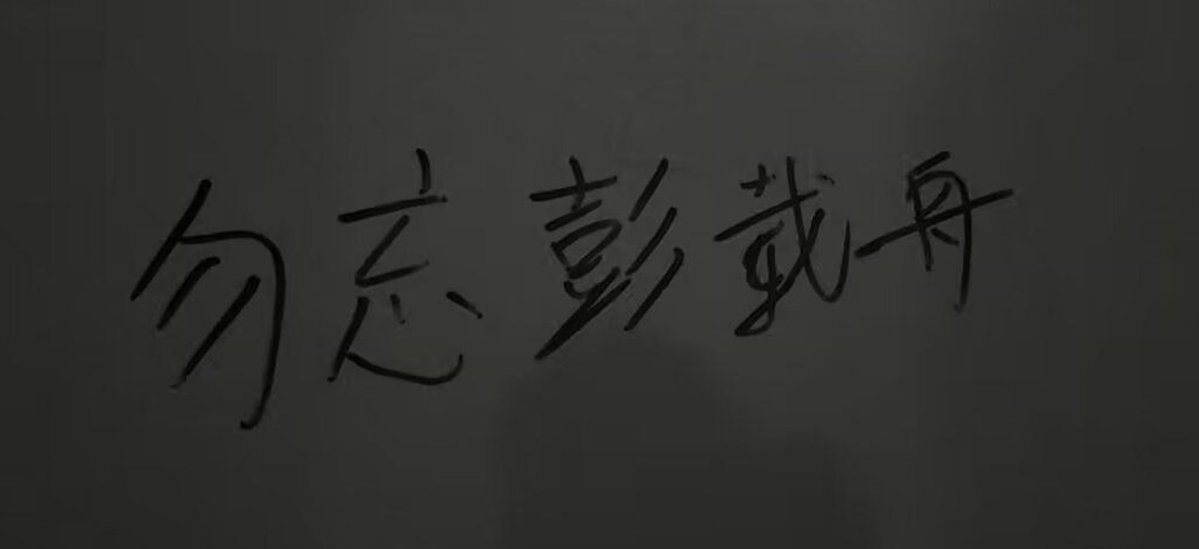 勿忘彭载舟